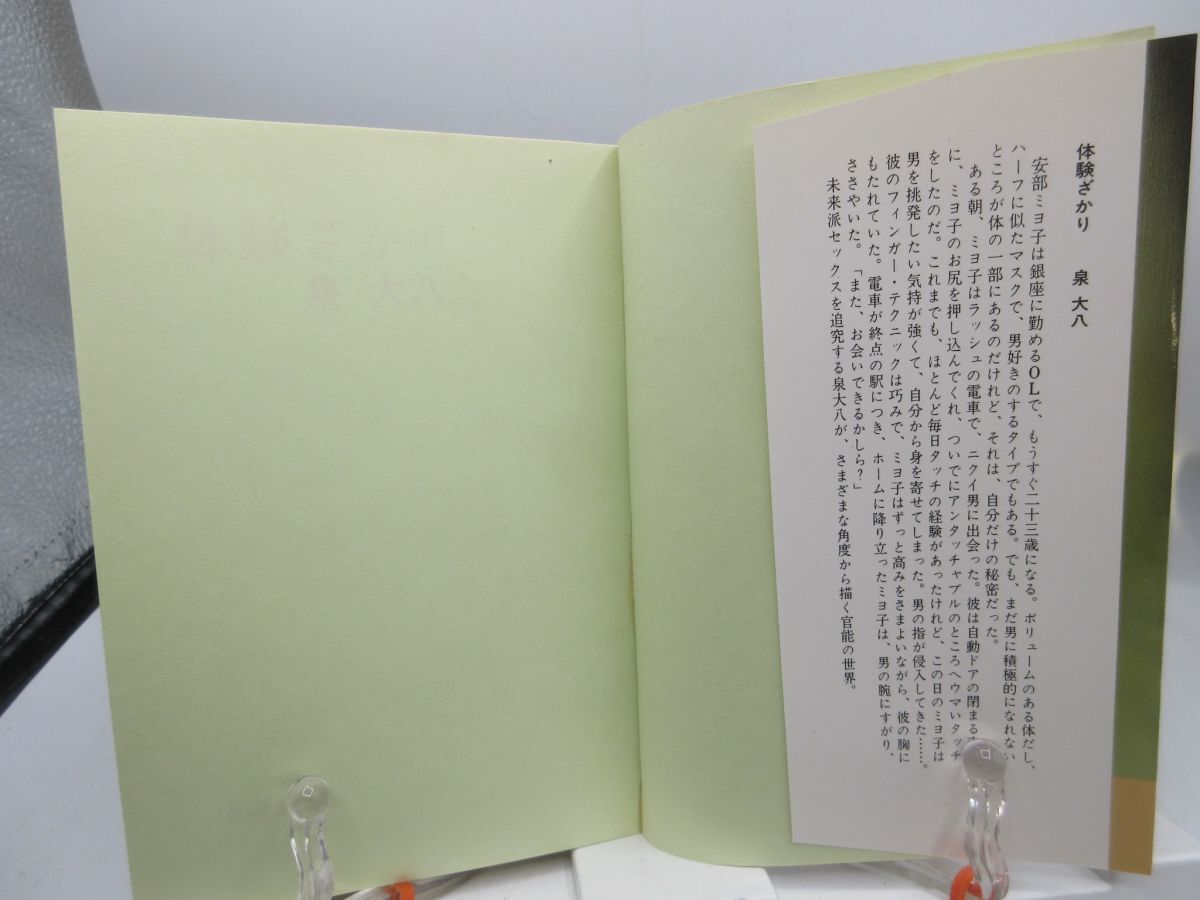 体験ざかり　泉 大八
安部ミヨ子は銀座に勤めるOLで、もうすぐ二十三歳になる。ボリュームのある体だし、
ハーフに似たマスクで、男好きのするタイプでもある。でも、まだ男に積極的になれない
ところが体の一部にあるのだけれど、それは、自分だけの秘密だった。
ある朝、ミヨ子はラッシュの電車で、ニクイ男に出会った。彼は自動ドアの閉まる
に、ミヨ子のお尻を押し込んでくれ、ついでにアンタッチャブルのところへウマいタッチ
をしたのだ。これまでも、ほとんど毎日タッチの経験があったけれど、この日のミヨ子は
男を挑発したい気持が強くて、自分から身を寄せてしまった。男の指が侵入してきた……。
彼のフィンガー・テクニックは巧みで、ミヨ子はずっと高みをさまよいながら、彼の胸に
もたれていた。電車が終点の駅につき、ホームに降り立ったミヨ子は、男の腕にすがり、
ささやいた。「また、お会いできるかしら？」
未来派セックスを追究する泉大八が、さまざまな角度から描く官能の世界。